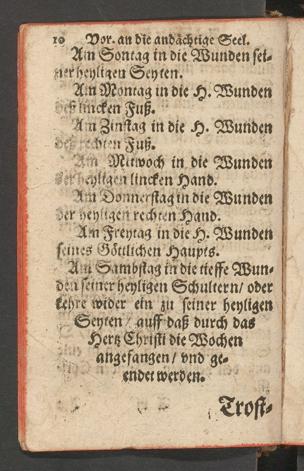 10 Vor. an die andächtige Seel.
Am Sontag in die Wunden sei-
ner heyligen Seyten.
Am Montag in die H. Wunden
deß lincken Fuß.
Am Zinstag in die H. Wunden
deß rechten Fuß.
Am Mitwoch in die Wunden
der heyligen lincken Hand.
Am Donnerstag in die Wunden
der heyligen rechten Hand.
Am Freytag in die H. Wunden
seines Göttlichen Haupts.
Am Sambstag in die tieffe Wun-
den seiner heyligen Schultern/ oder
kehre wider ein zu seiner heyligen
Seyten / auff daß durch das
Hertz Christi die Wochen
angefangen / vnd ge-
endet werden.
Trost-